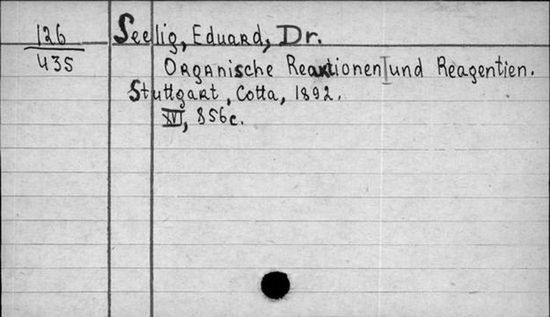 126
435
Seelig, Eduard, Dr.
Organische Reaktionen und Reagentien.
Stuttgart, Cotta, 1892.
XVI, 856c.